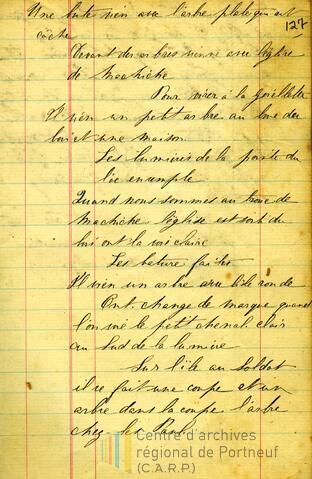 Une bute vien avec l'arbre plate qui est
127
cochée
Devant des arbres vienne avec l'église
de Machiche
Pour virer à la
Il vien un petit arbre au bout du
bois et une maison
Les lumières de la pointe du
lac ensemple
Quand nous sommes au travé de
Machiche l'église est sorti du
bois ont la voie claire
Les bature faites
Il vien un arbre avec l'ile ronde
Ont change de marque quand
l'on voie le petit chenal clair
au Sud de la lumière
Sur l'ile au Soldat
il ce fait une coupe et un
arbre dans la coupe l'arbre
chez
Centre d'archives
régional de Portneuf
(C.A.R.P.)